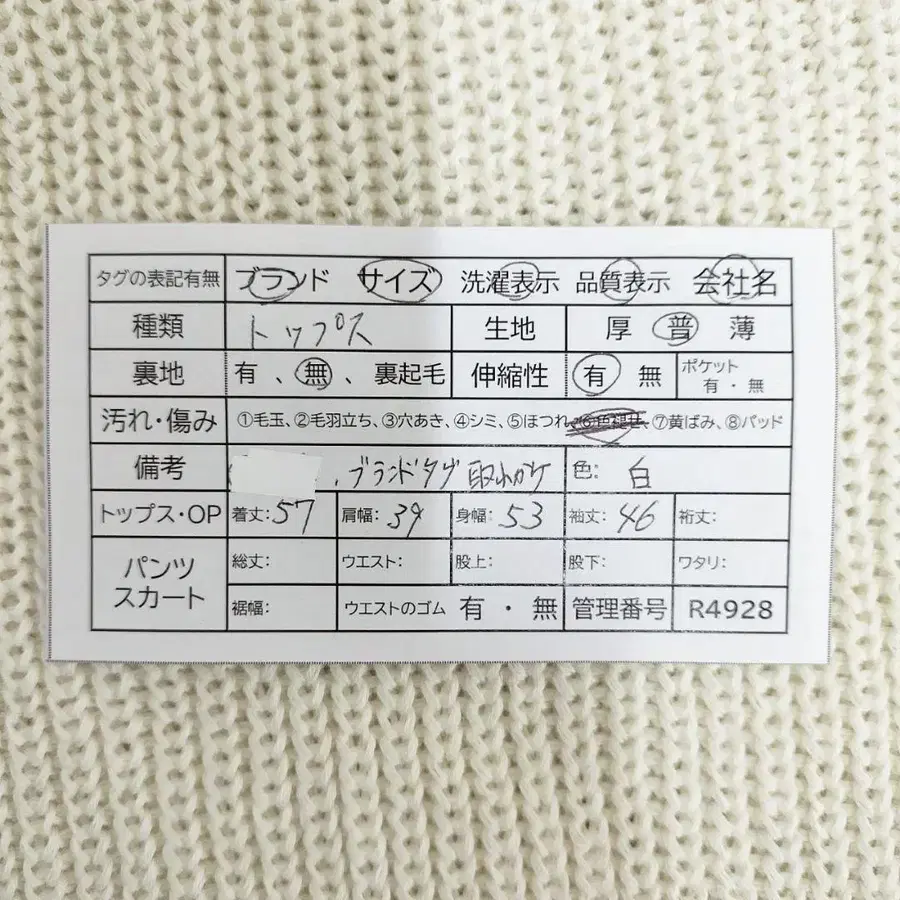 タグの表記有無 ブランド サイズ 洗濯表示 品質表示 会社名
種類 トップス 生地 厚 普 薄
裏地 有、無、裏起毛 伸縮性 有 無 ポケット 有・無
汚れ・傷み ①毛玉、②毛羽立ち、③穴あき、④シミ、⑤ほつれ、⑥色褪せ、⑦黄ばみ、⑧パッド
備考 、ブランドタグ取れかけ 色: 白
トップス・OP 着丈:57 肩幅:39 身幅:53 袖丈:46 裄丈:
パンツ スカート 総丈: ウエスト: 股上: 股下: ワタリ:
裾幅: ウエストのゴム 有・無 管理番号 R4928